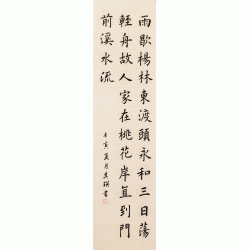 雨歇楊林東渡頭永和三日蕩
輕舟故人家在桃花岸直到門
前溪水流
壬寅夏月書